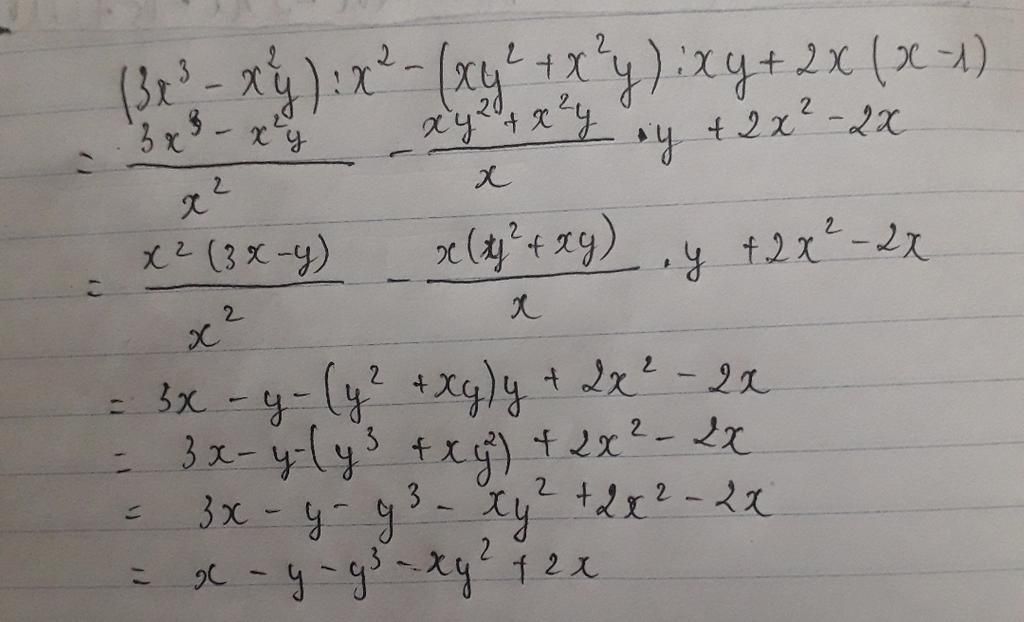 (3x³ - x²y) : x² - (xy² + x²y) : xy + 2x (x - 1)
= \frac{3x³ - x²y}{x²} - \frac{xy² + x²y}{x} . y + 2x² - 2x
= \frac{x² (3x - y)}{x²} - \frac{x(y² + xy)}{x} . y + 2x² - 2x
= 3x - y - (y² + xy)y + 2x² - 2x
= 3x - y - (y³ + xy²) + 2x² - 2x
= 3x - y - y³ - xy² + 2x² - 2x
= x - y - y³ - xy² + 2x